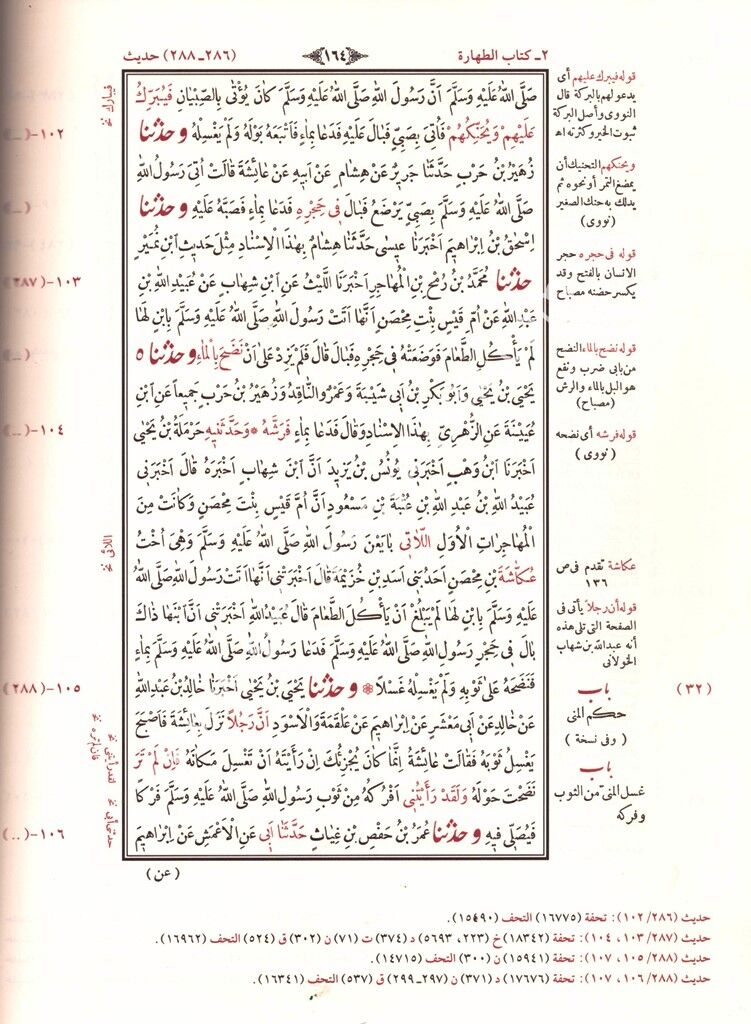 ٢ـ كتاب الطهارة
١٦٤
(٢٨٦ـ٢٨٨) حديث
صَلَّى اللهُ عَلَيْهِ وَسَلَّمَ اَنَّ رَسُولَ اللهِ صَلَّى اللهُ عَلَيْهِ وَسَلَّمَ كَانَ يُؤْتَى بِالصِّبْيَانِ فَيُبَرِّكُ
عَلَيْهِمْ وَيُحَنِّكُهُمْ فَأُتِىَ بِصَبِىٍّ فَبَالَ عَلَيْهِ فَدَعَا بِمَاءٍ فَأَتْبَعَهُ بَوْلَهُ وَلَمْ يَغْسِلْهُ وحدثنا
زُهَيْرُ بْنُ حَرْبٍ حَدَّثَنَا جَرِيرٌ عَنْ هِشَامٍ عَنْ اَبِيهِ عَنْ عَائِشَةَ قَالَتْ اُتِىَ رَسُولُ اللهِ
صَلَّى اللهُ عَلَيْهِ وَسَلَّمَ بِصَبِىٍّ يَرْضَعُ فَبَالَ فِى حَجْرِهِ فَدَعَا بِمَاءٍ فَصَبَّهُ عَلَيْهِ وحدثنا
اِسْحٰقُ بْنُ اِبْرَاهِيمَ اَخْبَرَنَا عِيسٰى حَدَّثَنَا هِشَامٌ بِهٰذَا الْاِسْنَادِ مِثْلَ حَدِيثِ ابْنِ نُمَيْرٍ
حدثنا مُحَمَّدُ بْنُ رُمْحِ بْنِ الْمُهَاجِرِ اَخْبَرَنَا اللَّيْثُ عَنِ ابْنِ شِهَابٍ عَنْ عُبَيْدِ اللهِ بْنِ
عَبْدِ اللهِ عَنْ اُمِّ قَيْسٍ بِنْتِ مِحْصَنٍ اَنَّهَا اَتَتْ رَسُولَ اللهِ صَلَّى اللهُ عَلَيْهِ وَسَلَّمَ بِابْنٍ لَهَا
لَمْ يَأْكُلِ الطَّعَامَ فَوَضَعَتْهُ فِى حَجْرِهِ فَبَالَ قَالَ فَلَمْ يَزِدْ عَلٰى اَنْ نَضَحَ بِالْمَاءِ وحدثناه
يَحْيَى بْنُ يَحْيٰى وَاَبُو بَكْرِ بْنُ اَبِى شَيْبَةَ وَعَمْرٌو النَّاقِدُ وَزُهَيْرُ بْنُ حَرْبٍ جَمِيعاً عَنِ ابْنِ
عُيَيْنَةَ عَنِ الزُّهْرِىِّ بِهٰذَا الْاِسْنَادِ وَقَالَ فَدَعَا بِمَاءٍ فَرَشَّهُ * وَحَدَّثَنِيهِ حَرْمَلَةُ بْنُ يَحْيٰى
اَخْبَرَنَا ابْنُ وَهْبٍ اَخْبَرَنِى يُونُسُ بْنُ يَزِيدَ اَنَّ ابْنَ شِهَابٍ اَخْبَرَهُ قَالَ اَخْبَرَنِى
عُبَيْدُ اللهِ بْنُ عَبْدِ اللهِ بْنِ عُتْبَةَ بْنِ مَسْعُودٍ اَنَّ اُمَّ قَيْسٍ بِنْتَ مِحْصَنٍ وَكَانَتْ مِنَ
الْمُهَاجِرَاتِ الْاُوَلِ اللَّاتِى بَايَعْنَ رَسُولَ اللهِ صَلَّى اللهُ عَلَيْهِ وَسَلَّمَ وَهِىَ اُخْتُ
عُكَّاشَةَ بْنِ مِحْصَنٍ اَحَدُ بَنِى اَسَدِ بْنِ خُزَيْمَةَ قَالَ اَخْبَرَتْنِى اَنَّهَا اَتَتْ رَسُولَ اللهِ صَلَّى اللهُ
عَلَيْهِ وَسَلَّمَ بِابْنٍ لَهَا لَمْ يَبْلُغْ اَنْ يَأْكُلَ الطَّعَامَ قَالَ عُبَيْدُ اللهِ اَخْبَرَتْنِى اَنَّ ابْنَهَا ذَاكَ
بَالَ فِى حَجْرِ رَسُولِ اللهِ صَلَّى اللهُ عَلَيْهِ وَسَلَّمَ فَدَعَا رَسُولُ اللهِ صَلَّى اللهُ عَلَيْهِ وَسَلَّمَ بِمَاءٍ
فَنَضَحَهُ عَلٰى ثَوْبِهِ وَلَمْ يَغْسِلْهُ غَسْلاً * وحدثنا يَحْيَى بْنُ يَحْيٰى اَخْبَرَنَا خَالِدُ بْنُ عَبْدِ اللهِ
عَنْ خَالِدٍ عَنْ اَبِى مَعْشَرٍ عَنْ اِبْرَاهِيمَ عَنْ عَلْقَمَةَ وَالْاَسْوَدِ اَنَّ رَجُلاً نَزَلَ بِعَائِشَةَ فَاَصْبَحَ
يَغْسِلُ ثَوْبَهُ فَقَالَتْ عَائِشَةُ اِنَّمَا كَانَ يُجْزِئُكَ اِنْ رَأَيْتَهُ اَنْ تَغْسِلَ مَكَانَهُ فَاِنْ لَمْ تَرَ
نَضَحْتَ حَوْلَهُ وَلَقَدْ رَأَيْتُنِى اَفْرُكُهُ مِنْ ثَوْبِ رَسُولِ اللهِ صَلَّى اللهُ عَلَيْهِ وَسَلَّمَ فَرْكاً
فَيُصَلِّى فِيهِ وحدثنا عُمَرُ بْنُ حَفْصِ بْنِ غِيَاثٍ حَدَّثَنَا اَبِى عَنِ الْاَعْمَشِ عَنْ اِبْرَاهِيمَ
( عن )
قوله فيبرك عليهم أى
يدعو لهم بالبركة قال
النووى وأصل البركة
ثبوت الخير وكثرته اه
ويحنكهم التحنيك أن
يمضغ التمر أو نحوه ثم
يدلك به حنك الصغير
( نووى )
قوله فى حجره حجر
الانسان بالفتح وقد
يكسر حضنه مصباح
قوله نضح بالماء النضح
من بابى ضرب ونفع
هو البل بالماء والرش
(مصباح)
قوله فرشه أى نضحه
( نووى )
عكاشة تقدم فى ص
١٣٦
قوله أن رجلاً يأتى فى
الصفحة التى تلى هذه
أنه عبدالله بن شهاب
الخولانى
(٣٢)
باب
حكم المنى
( وفى نسخة )
باب
غسل المنى من الثوب
وفركه
فيبارك نخ
١٠٢-(...)
(...)
١٠٣-(٢٨٧)
(...)
١٠٤-(...)
اللائى نخ
١٠٥-(٢٨٨)
لقد رأيتنى نخ
فان لم تره نخ
حدثنى أبى نخ
١٠٦-(...)
حديث (١٠٢/٢٨٦): تحفة (١٦٧٧٥) التحف (١٥٤٩٠).
حديث (١٠٣/٢٨٧، ١٠٤): تحفة (١٨٣٤٢) خ (٢٢٣، ٥٦٩٣) د (٣٧٤) ت (٧١) ن (٣٠٢) ق (٥٢٤) التحف (١٦٩٦٢).
حديث (١٠٥/٢٨٨، ١٠٧): تحفة (١٥٩٤١) ن (٣٠٠) التحف (١٤٧١٥).
حديث (١٠٦/٢٨٨، ١٠٧): تحفة (١٧٦٧٦) د (٣٧١) ن (٢٩٧ـ٢٩٩) ق (٥٣٧) التحف (١٦٣٤١).